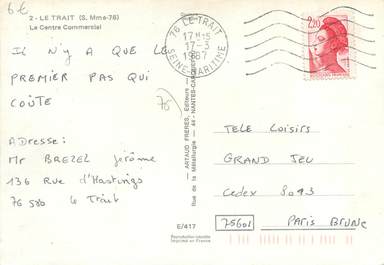 6€
2 - LE TRAIT (S. Mme-76)
Le Centre Commercial
IL N'Y A QUE LE
PREMIER PAS QUI
COÛTE
76
ADresse:
Mr BREZEL Jérôme
136 Rue d'Hastings
76 580 Le Trait
E/417
Reproduction interdite
Imprimé en France
ARTAUD FRERES, Editeurs
Rue de la Métallurgie - 44 - NANTES-CARQUEFOU
76 LE TRAIT
17H15
17-3
1987
SEINE-MARITIME
2,20
TELE LOISIRS
GRAND JEU
Cedex 8093
75601 PARIS BRUNE